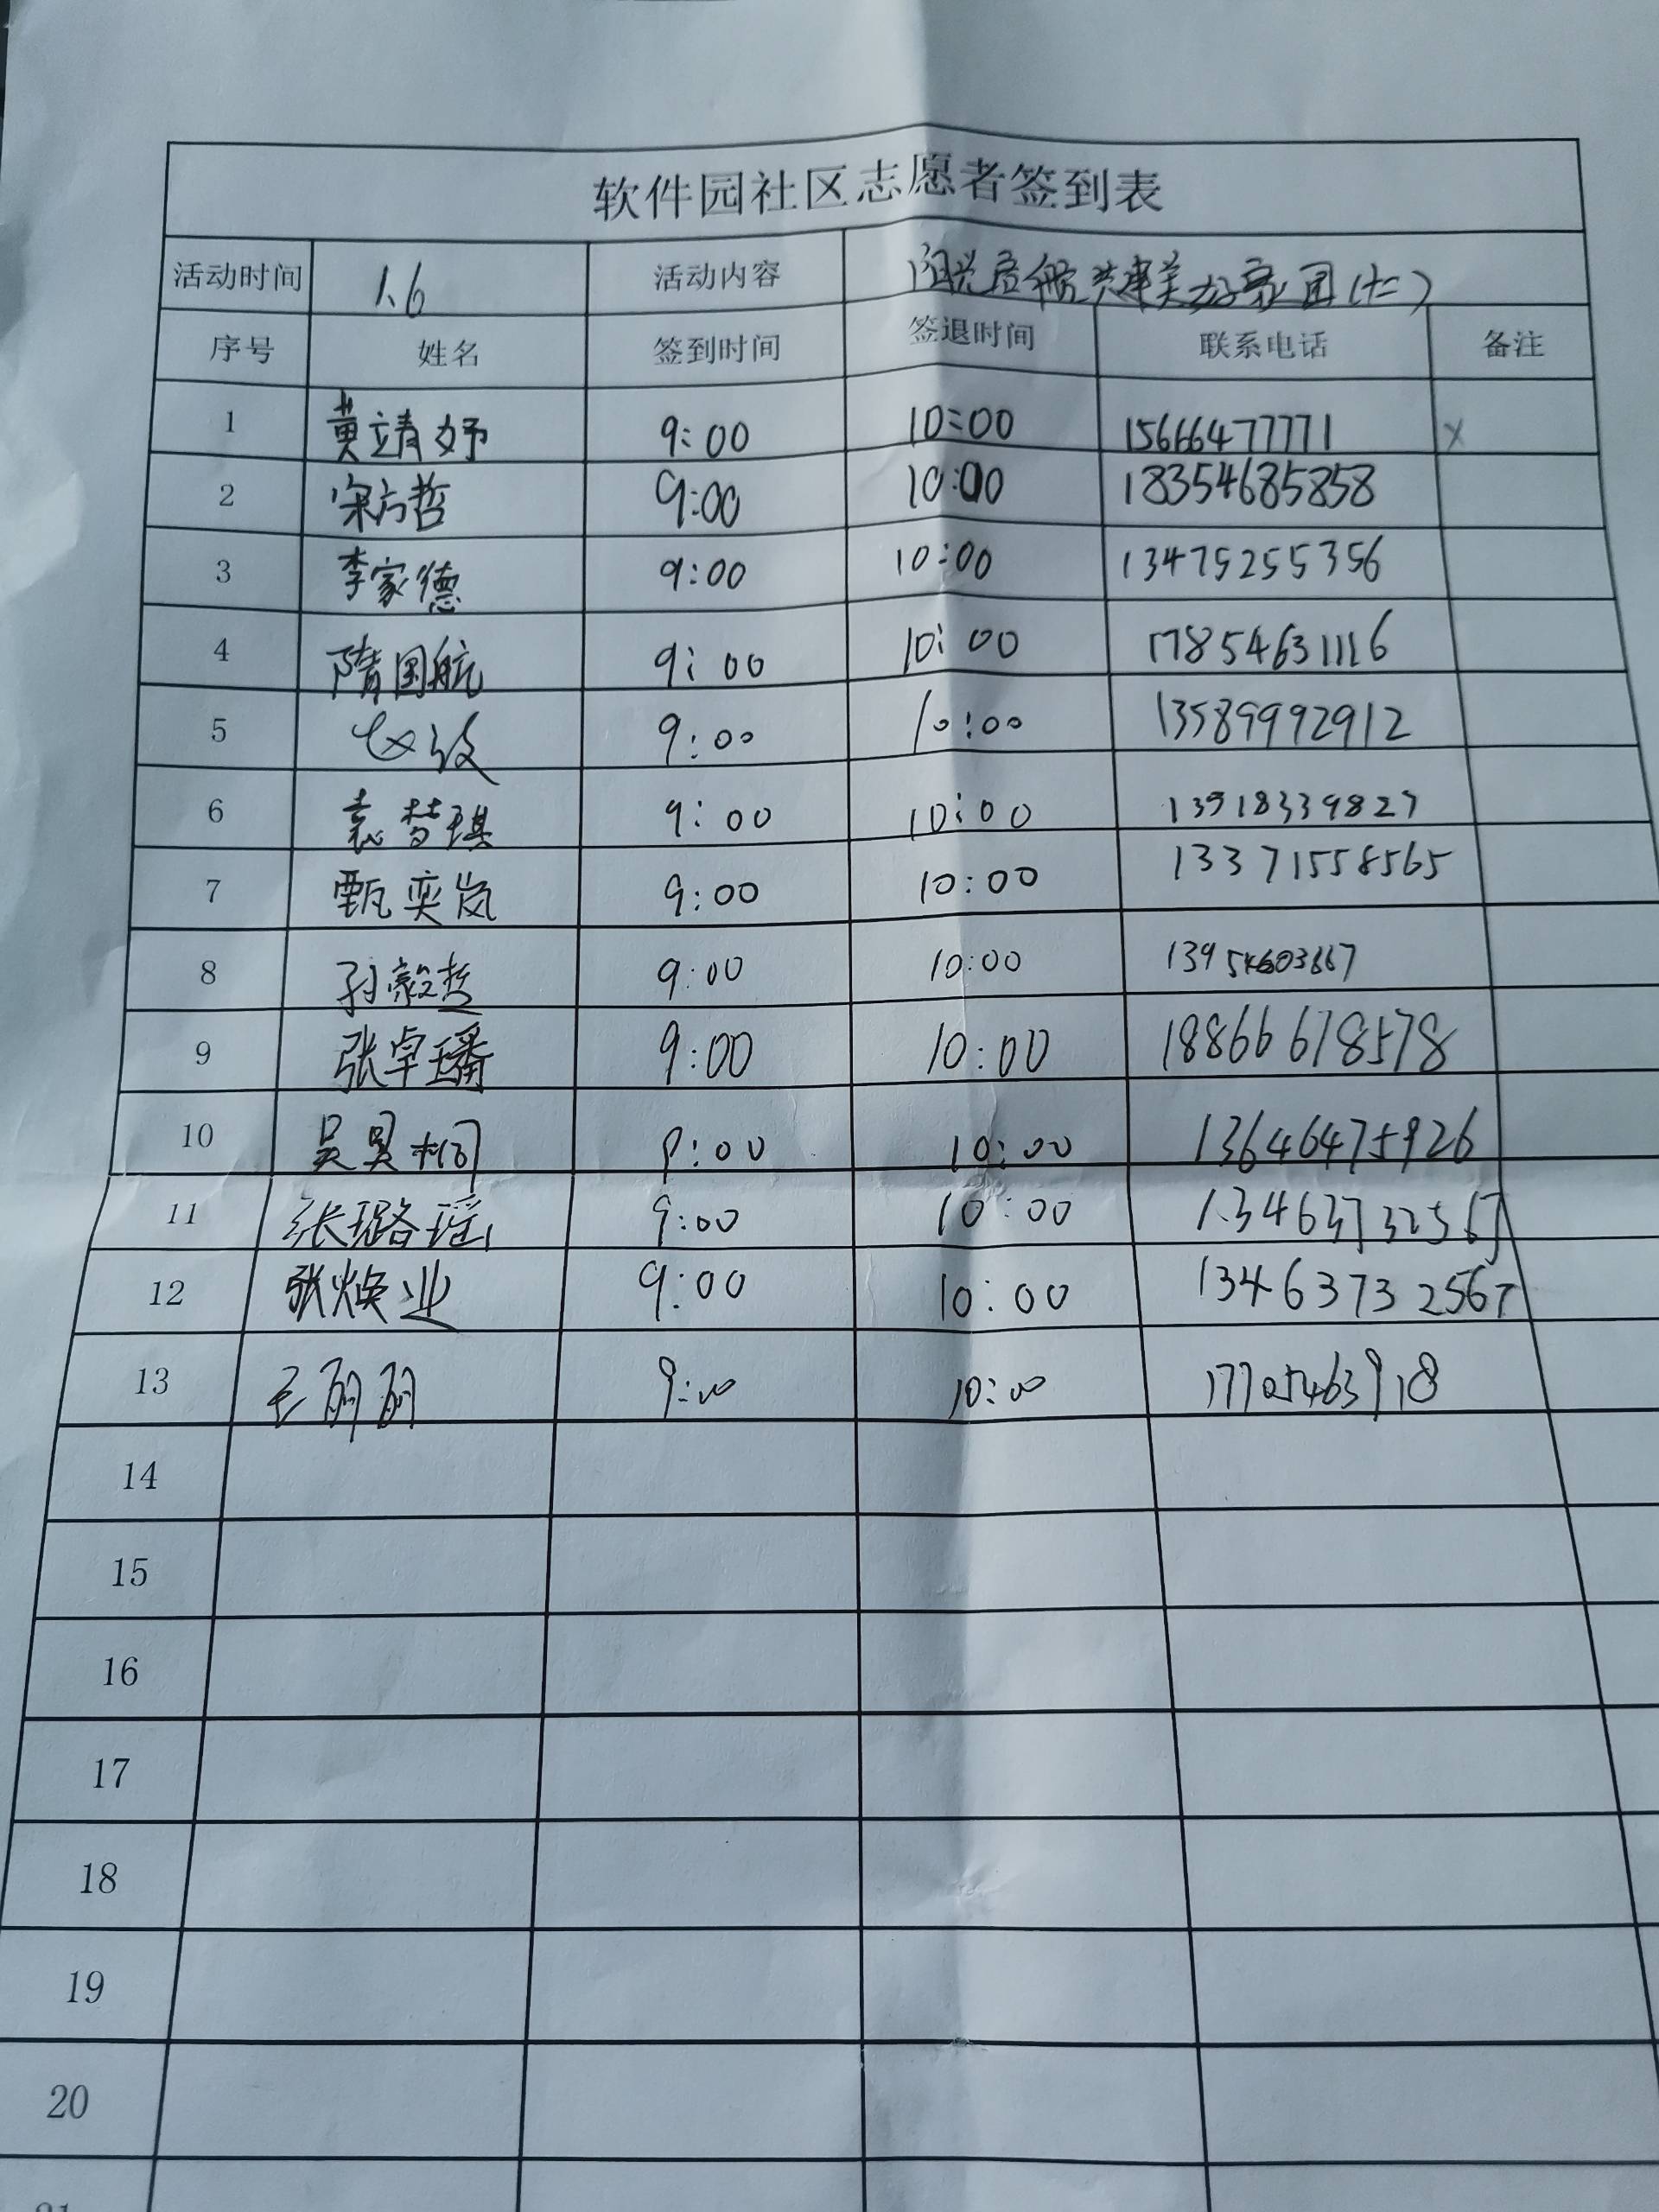 软件园社区志愿者签到表
活动时间 1.6 活动内容 阳光启航 共建美好家园(十二)
序号 姓名 签到时间 签退时间 联系电话 备注
1 黄靖妤 9:00 10:00 15666477771 x
2 宋方哲 9:00 10:00 18354685858
3 李家德 9:00 10:00 13475255356
4 隋国航 9:00 10:00 17854631116
5 9:00 10:00 13589992912
6 袁梦琪 9:00 10:00 13518339827
7 甄奕岚 9:00 10:00 13371558565
8 孙毅哲 9:00 10:00
9 张卓璠 9:00 10:00 18866678578
10 吴昊桐 9:00 10:00 13646475926
11 张璐瑶 9:00 10:00 13463732567
12 张焕业 9:00 10:00 13463732567
13 王丽丽 9:00 10:00 17705463918
14
15
16
17
18
19
20
21